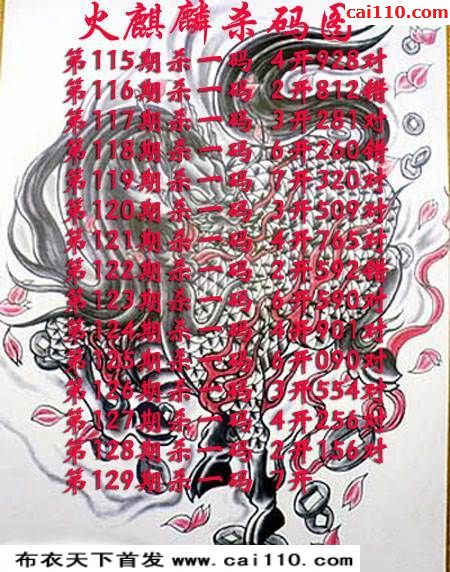 cai110.com
火麒麟杀码图
第115期杀一码 4开928对
第116期杀一码 2开812错
第117期杀一码 3开281对
第118期杀一码 6开260错
第119期杀一码 7开320对
第120期杀一码 3开509对
第121期杀一码 4开765对
第122期杀一码 2开592错
第123期杀一码 6开590对
第124期杀一码 4开901对
第125期杀一码 6开090对
第126期杀一码 3开554对
第127期杀一码 4开256对
第128期杀一码 2开156对
第129期杀一码 7开
布衣天下首发 www.cai110.com